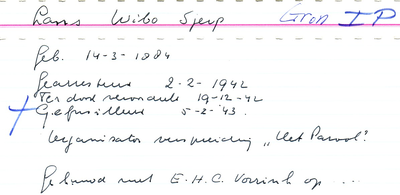 Lans Wibo Sjerp Gron I P
geb. 14-3-1884
Gearresteerd 2-2-1942
Ter dood veroordeeld 19-12-42
Gefusilleerd 5-2-'43.
Organisator verspreiding "Het Parool".
Gehuwd met E.H.C. Vorrink op ...